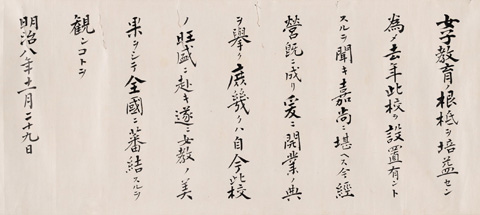 女子教育ノ根柢ヲ培益セン
為メ去年此校ヲ設置有ント
スルヲ聞キ嘉尚ニ堪ヘス今経
営既ニ成リ爰ニ開業ノ典
ヲ挙ク庶幾クハ自今此校
ノ旺盛ニ赴キ遂ニ女教ノ美
果ヲシテ全國ニ蕃結スルヲ
観ンコトヲ
明治八年十一月二十九日